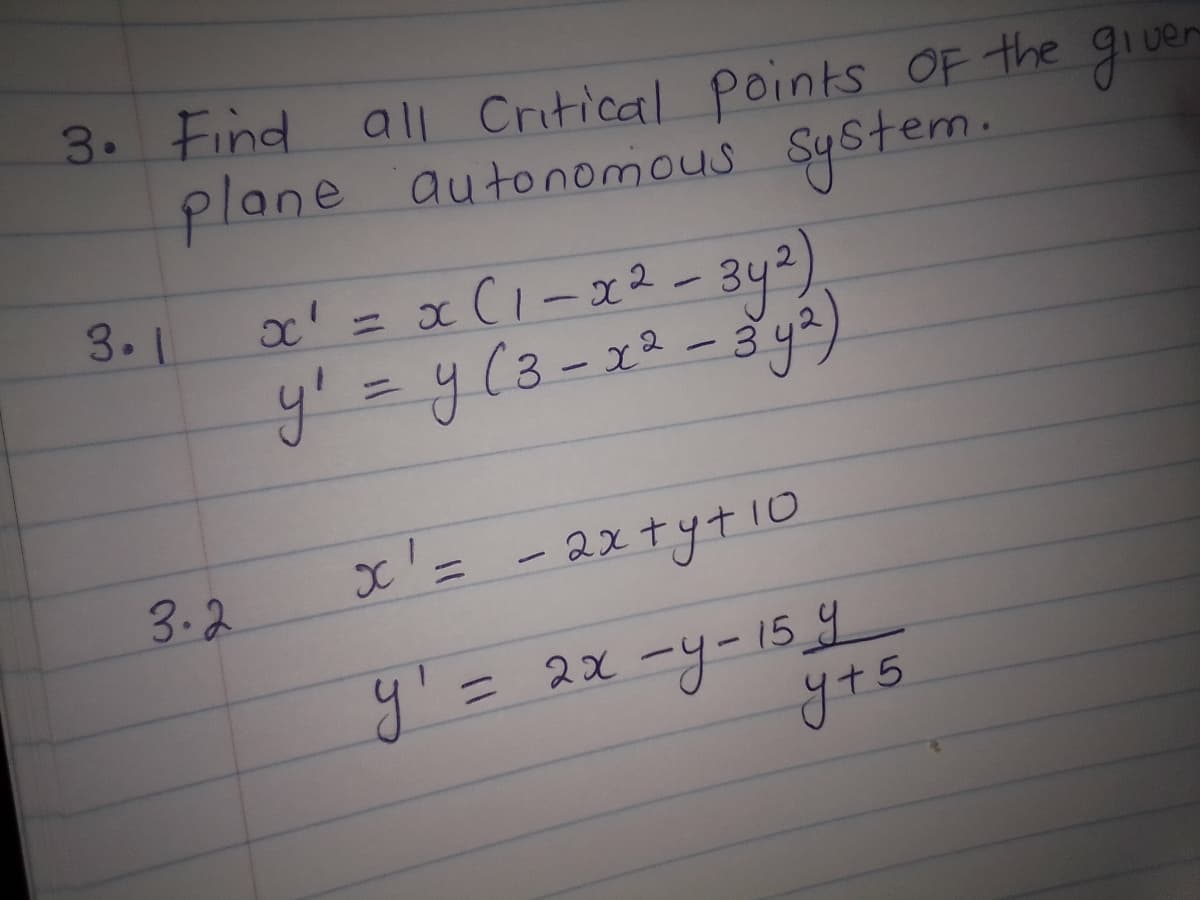 3. Find all Critical Points OF the given
plane autonomous system.
3.1 x' = x (1 - x² - 3y²)
y' = y (3 - x² - 3y²)
3.2 x' = - 2x + y + 10
y' = 2x - y - 15 y / y+5